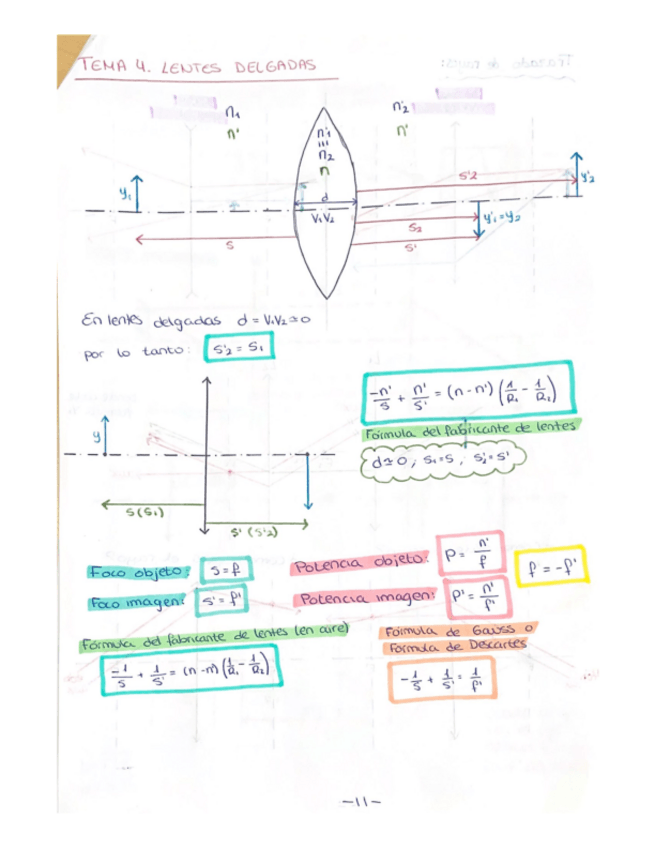 TEMA 4. LENTES DELGADAS
n₁
n'
n'₁
≡
n₂
n
n'₂
n'
y₁
d
V₁V₂
s
s'2
s₂
s'
y'₁=y₂
y'₂
En lentes delgadas d = V₁V₂ ≃ 0
por lo tanto: s'₂ = s₁
-n'/s + n'/s' = (n - n') (1/R₁ - 1/R₂)
Fórmula del fabricante de lentes
d ≃ 0, s₁=s, s'₂=s'
y
s (s₁)
s' (s'2)
Foco objeto: s = f
Potencia objeto: P = n'/f
f = -f'
Foco imagen: s' = f'
Potencia imagen: P' = n'/f'
Fórmula del fabricante de lentes (en aire)
-1/s + 1/s' = (n - n') (1/R₁ - 1/R₂)
Fórmula de Gauss o
Fórmula de Descartes
-1/s + 1/s' = 1/f'
-11-